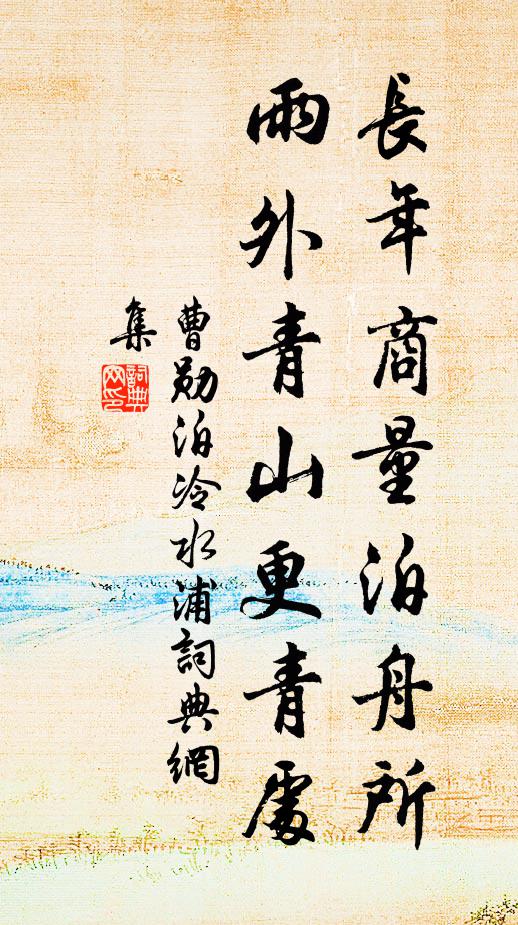 長年商量泊舟所
雨外青山更青處
曹勛泊冷水浦詞典網
集
詞典
网印